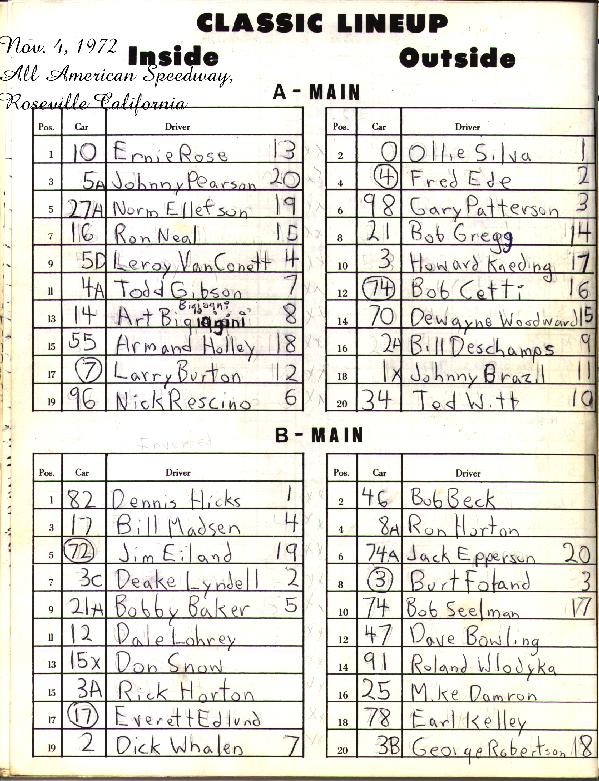 CLASSIC LINEUP
Nov. 4, 1972
Inside Outside
All American Speedway,
Roseville California
A - MAIN
Pos. Car Driver Pos. Car Driver
1 10 Ernie Rose 13 2 0 Ollie Silva 1
3 5A Johnny Pearson 20 4 4 Fred Ede 2
5 27A Norm Ellefson 19 6 98 Gary Patterson 3
7 16 Ron Neal 15 8 21 Bob Gregg 14
9 5D Leroy VanConett 4 10 3 Howard Kaeding 17
11 4A Todd Gibson 7 12 74 Bob Cetti 16
Bigiagini
13 14 Art Bigiagini 8 14 70 Dewayne Woodward 15
15 55 Armand Holley 18 16 2A Bill Deschamps 9
17 7 Larry Burton 12 18 1x Johnny Brazil 11
19 96 Nick Rescino 6 20 34 Ted Witt 10
B - MAIN
Pos. Car Driver Pos. Car Driver
1 82 Dennis Hicks 1 2 46 Bob Beck
3 17 Bill Madsen 4 4 8A Ron Horton
5 72 Jim Eiland 19 6 74A Jack Epperson 20
7 3c Deake Lyndell 2 8 3 Burt Foland 3
9 21A Bobby Baker 5 10 74 Bob Seelman 17
11 12 Dale Lohrey 12 47 Dave Bowling
13 15x Don Snow 14 91 Roland Wlodyka
15 3A Rick Horton 16 25 Mike Damron
17 17 Everett Edlund 18 78 Earl Kelley
19 2 Dick Whalen 7 20 3B George Robertson 18